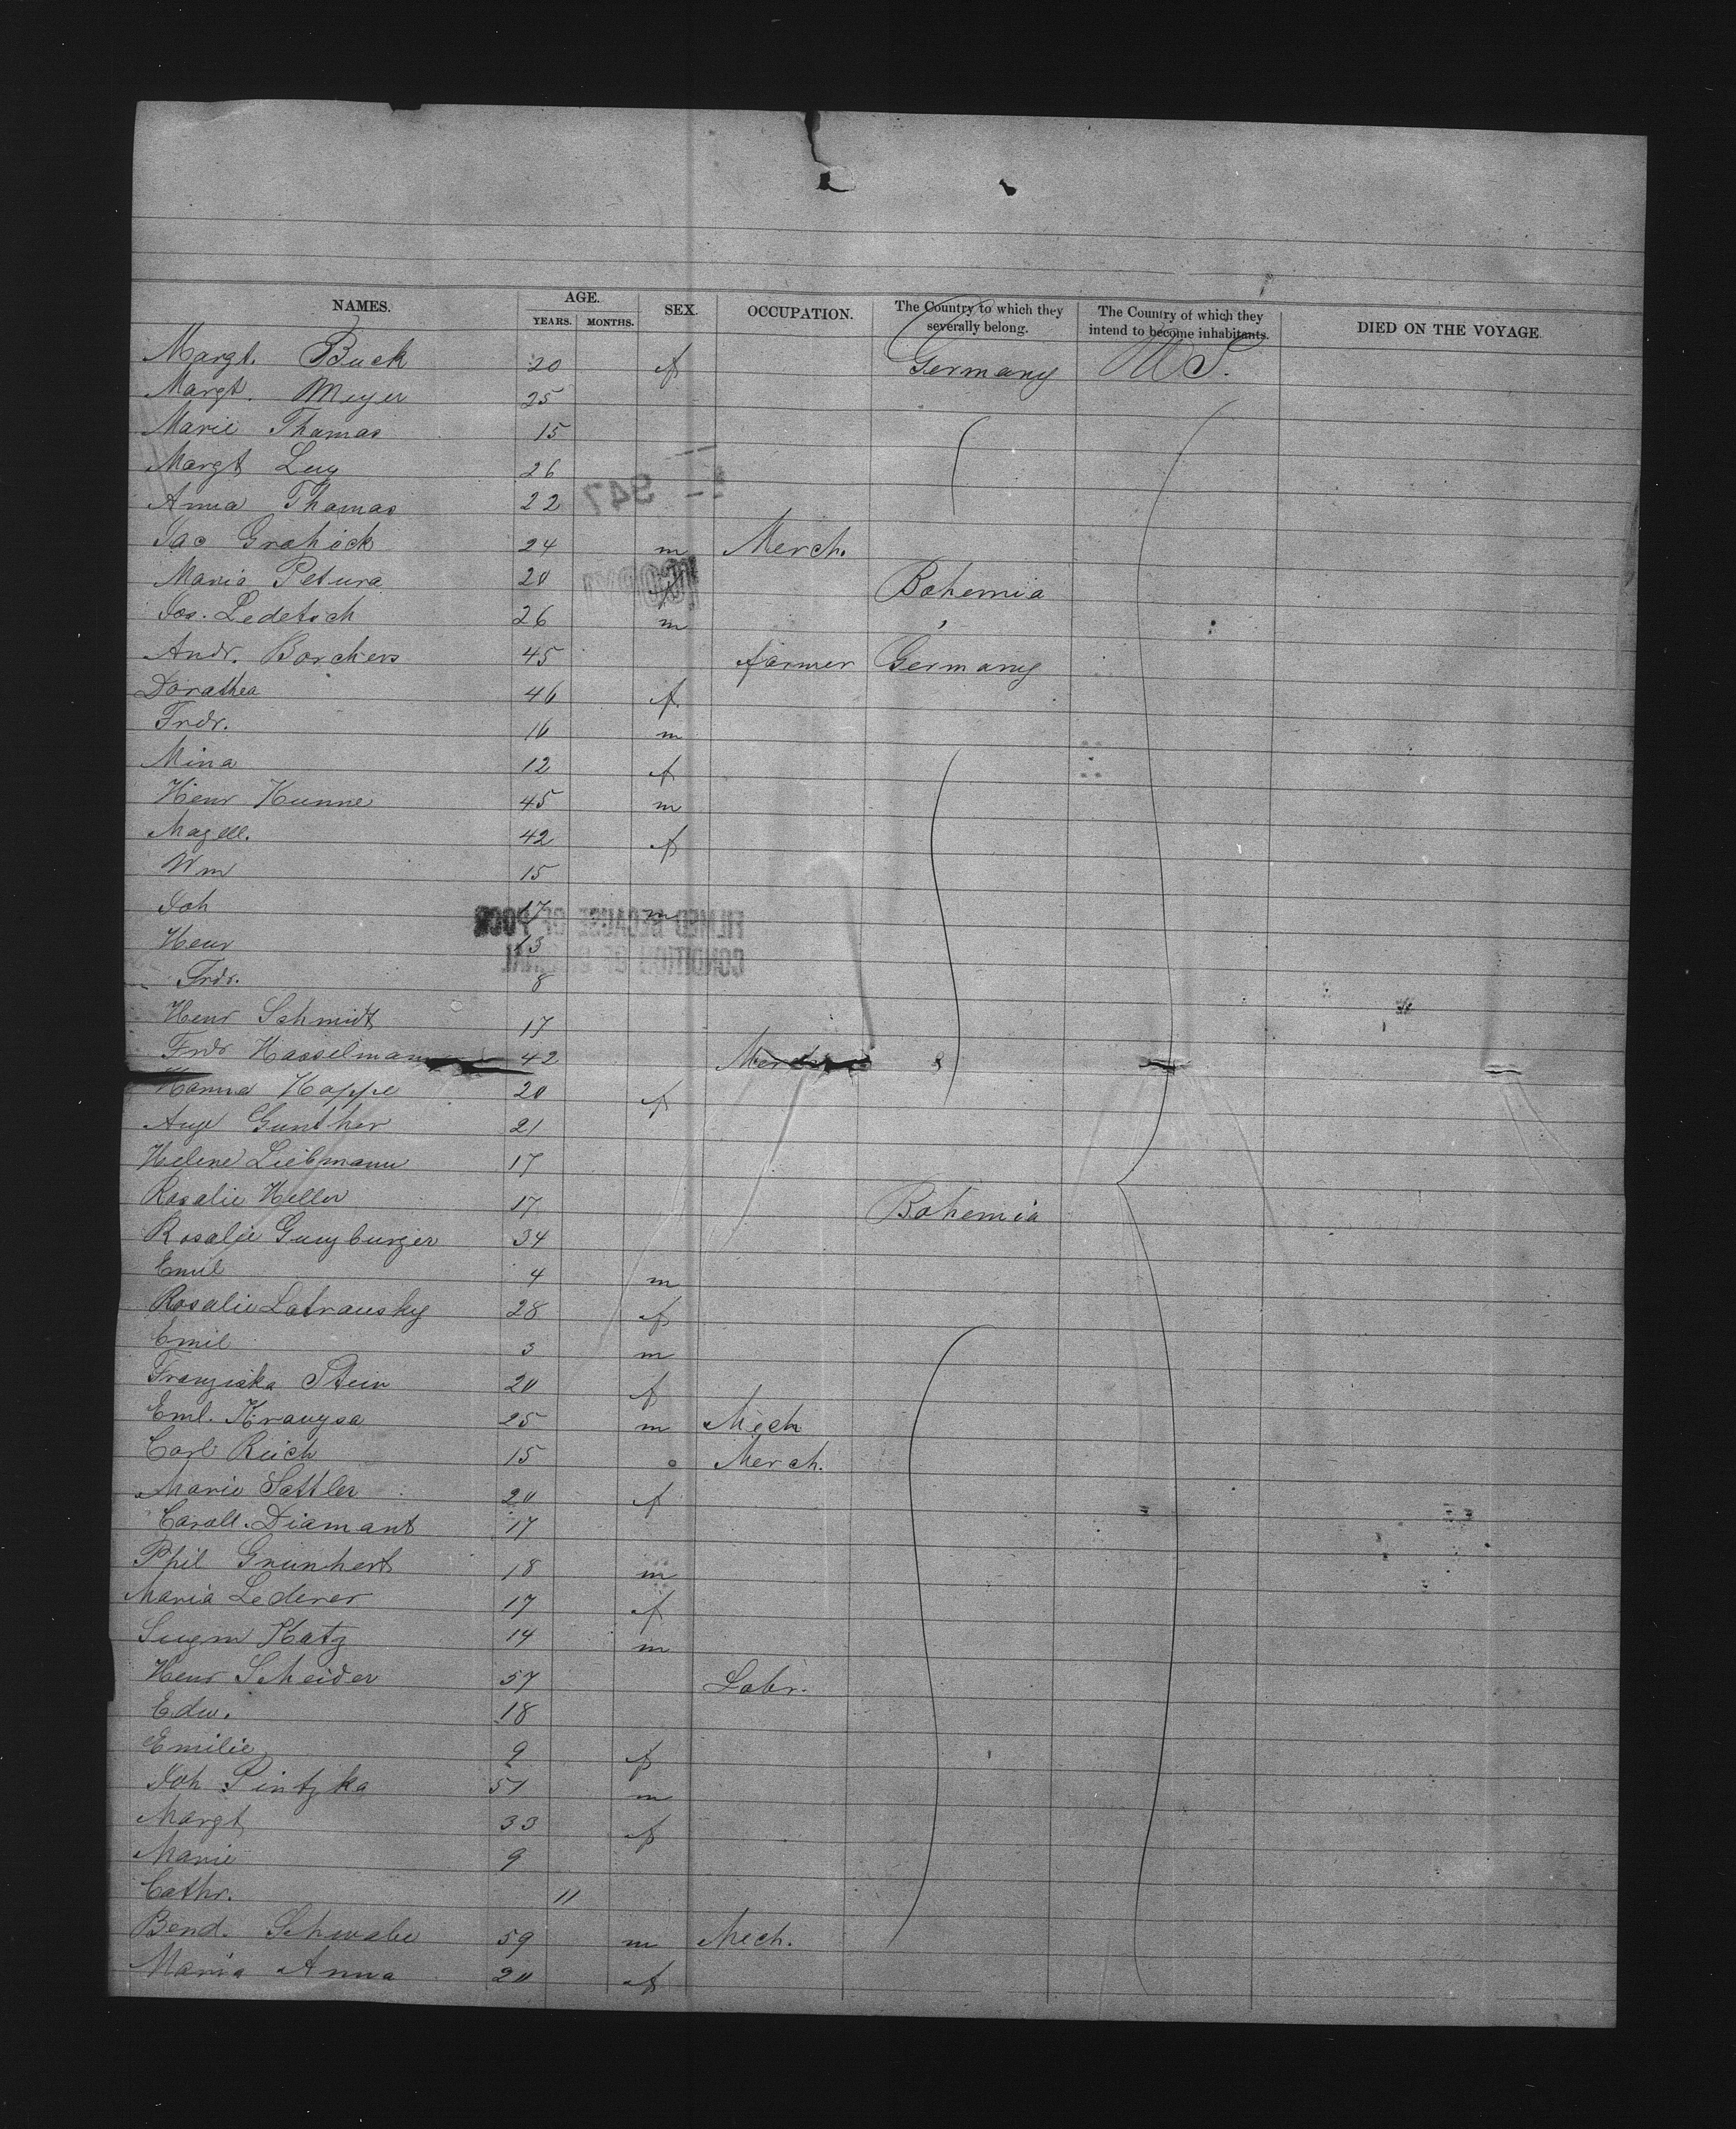 NAMES. AGE. YEARS. MONTHS. SEX. OCCUPATION. The Country to which they severally belong. The Country of which they intend to become inhabitants. DIED ON THE VOYAGE.
Margt. Buck 20 f Germany U S.
Margt. Meyer 25
Marie Thomas 15
Margt Luy 26
947
Anna Thomas 22
Jac Grohöck 24 m Merch.
COPY
Maria Petura 20 f Bohemia
Jos. Ledetsch 26 m
Andr. Borchers 45 farmer Germany
Dorathea 46 f
Frdr. 16 m
Mina 12 f
Henr Kunne 45 m
Magdl. 42 f
Wm 15
Joh 17 m
FILMED BECAUSE OF POOR
Henr 13
CONDITION OF ORIGINAL
Frdr. 8
Henr Schmidt 17
Frdr Hasselmann 42 Merch
Hanna Hoppe 20 f
Aug Gunther 21
Helene Liebmann 17
Rosalie Heller 17 Bohemia
Rosalie Gunzburger 34
Emil 4 m
Rosalie Latransky 28 f
Emil 3 m
Franziska Stein 20 f
Eml. Krauysa 25 m Mech
Carl Reich 15 Merch.
Marie Sattler 20 f
Caroll. Diamant 17
Phil Grunhert 18 m
Maria Lederer 17 f
Katz 14 m
Henr Scheider 57 Labr.
Edw. 18
Emilie 9 f
Joh Pintzka 51 m
Margt 33 f
Marie 9
Cathr. 11
Bend. Schwabe 59 m Mech.
Maria Anna 20 f